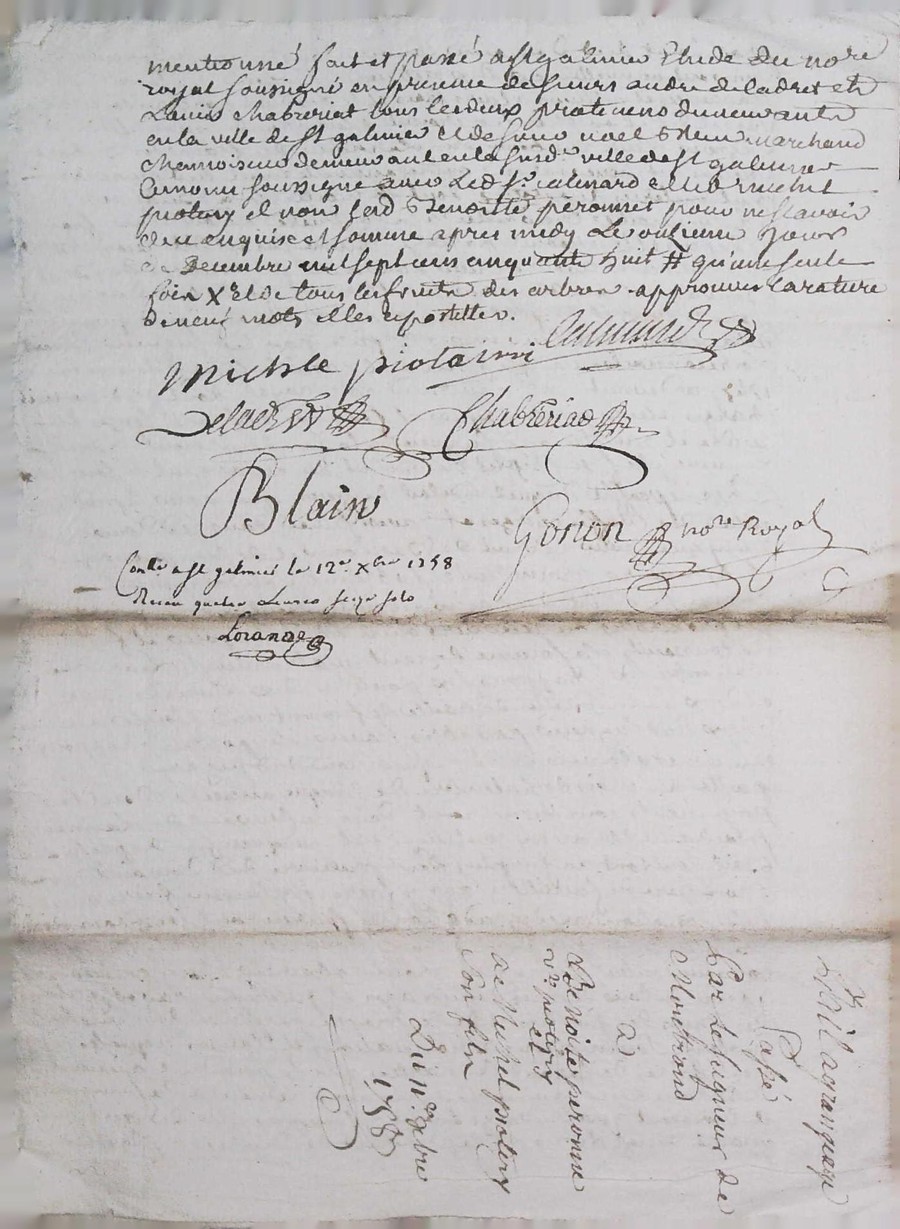 mentionné fait et passé a st galmier Etude du no.re
royal soussigné en presence de sieurs andré deladret et
Louis chabreriat tous les deux praticiens demeurants
en la ville de st galmier et de sieur noel Blein marchand
chamoiseur demeurant en la susd.e ville de st galmier
qui ont soussigné avec Led. s.r calmard et led michel
piotery et non lad Benoitte peronnet pour ne scavoir
de ce enquise et sommé apres midy Le onzieme Jour
de Decembre mil sept cens cinquante huit # qu'une seule
fois X et de tous les fruits des arbres approuvés la rature
de neuf mots et les apostilles.
Michele piotairi calmard
Deladret Chabreriad
Blain
Gonon no.re Royal
Con.lé a st galmier le 12.e Xbre 1758
Recu quatre Livres seize sols
Lorande
grangeage
Passé
Par le seigneur de
Montrond
a
Benoite peronne
v.e piotery
et
a Michel piotery
son fils
Du 11.e Xbre
1758